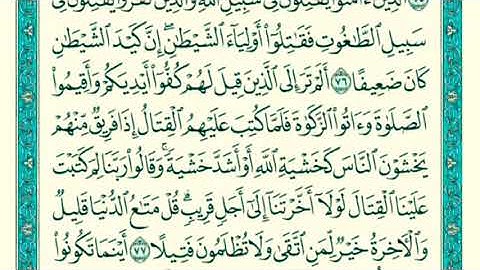 الَّذِينَ ءَامَنُوا۟ يُقَٰتِلُونَ فِى سَبِيلِ ٱللَّهِ وَٱلَّذِينَ كَفَرُوا۟ يُقَٰتِلُونَ فِى
سَبِيلِ ٱلطَّٰغُوتِ فَقَٰتِلُوٓا۟ أَوْلِيَآءَ ٱلشَّيْطَٰنِ ۖ إِنَّ كَيْدَ ٱلشَّيْطَٰنِ
كَانَ ضَعِيفًا ٧٦ أَلَمْ تَرَ إِلَى ٱلَّذِينَ قِيلَ لَهُمْ كُفُّوٓا۟ أَيْدِيَكُمْ وَأَقِيمُوا۟
ٱلصَّلَوٰةَ وَءَاتُوا۟ ٱلزَّكَوٰةَ فَلَمَّا كُتِبَ عَلَيْهِمُ ٱلْقِتَالُ إِذَا فَرِيقٌ مِّنْهُمْ
يَخْشَوْنَ ٱلنَّاسَ كَخَشْيَةِ ٱللَّهِ أَوْ أَشَدَّ خَشْيَةً ۚ وَقَالُوا۟ رَبَّنَا لِمَ كَتَبْتَ
عَلَيْنَا ٱلْقِتَالَ لَوْلَآ أَخَّرْتَنَآ إِلَىٰٓ أَجَلٍ قَرِيبٍ ۗ قُلْ مَتَٰعُ ٱلدُّنْيَا قَلِيلٌ
وَٱلْءَاخِرَةُ خَيْرٌ لِّمَنِ ٱتَّقَىٰ وَلَا تُظْلَمُونَ فَتِيلًا ٧٧ أَيْنَمَا تَكُونُوا۟